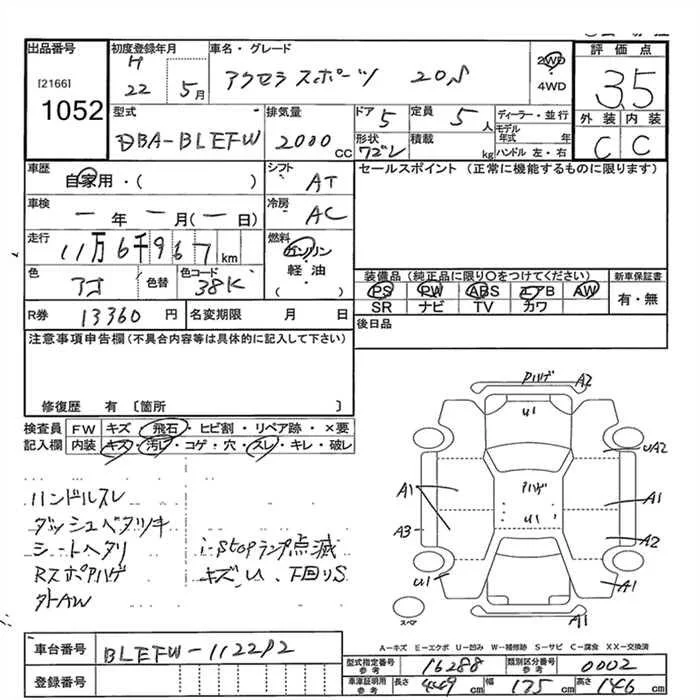 出品番号
[2166]
1052
初度登録年月
H
22 5月
車名・グレード
アクセラスポーツ 20S
2WD
4WD
評価点
3.5
外装 内装
C C
型式
DBA-BLEFW
排気量
2000 CC
ドア
5
定員
5人
形状
積載
kg
ディーラー・並行
モデル年式 年
ハンドル 左・右
車歴
自家用・( )
シフト
AT
セールスポイント (正常に機能するものに限ります)
車検
一年一月(一日)
冷房
AC
走行
11万6千967km
燃料
ガソリン
軽油
( )
色
アオ
色替
色コード
38K
装備品(純正品に限り○をつけてください)
PS PW ABS エアB AW
SR ナビ TV カワ
新車保証書
有・無
R券 13360円
名変期限 月 日
後日品
注意事項申告欄(不具合内容等は具体的に記入して下さい)
修復歴 有 〔箇所 〕
検査員
記入欄
FW キズ・飛石・ヒビ割・リペア跡・×要
内装 キズ・汚レ・コゲ・穴・スレ・キレ・破レ
ハンドルスレ
ダッシュベタツキ
シートヘタリ
Rスポアハゲ
外AW
i-stopランプ点滅
キズ、U、下回りS
Pハゲ A2
U1
UA2
Pハゲ
U1
A1
A1
A3
A2
U1
A1
A1
スペア
A-キズ E-エクボ U-凹み W-補修跡 S-サビ C-腐食 XX-交換済
車台番号
BLEFW-112292
登録番号
型式指定番号
参考
16288
類別区分番号
参考
0002
車庫証明用
参考
長さ 449cm
幅 175cm
高さ 146cm